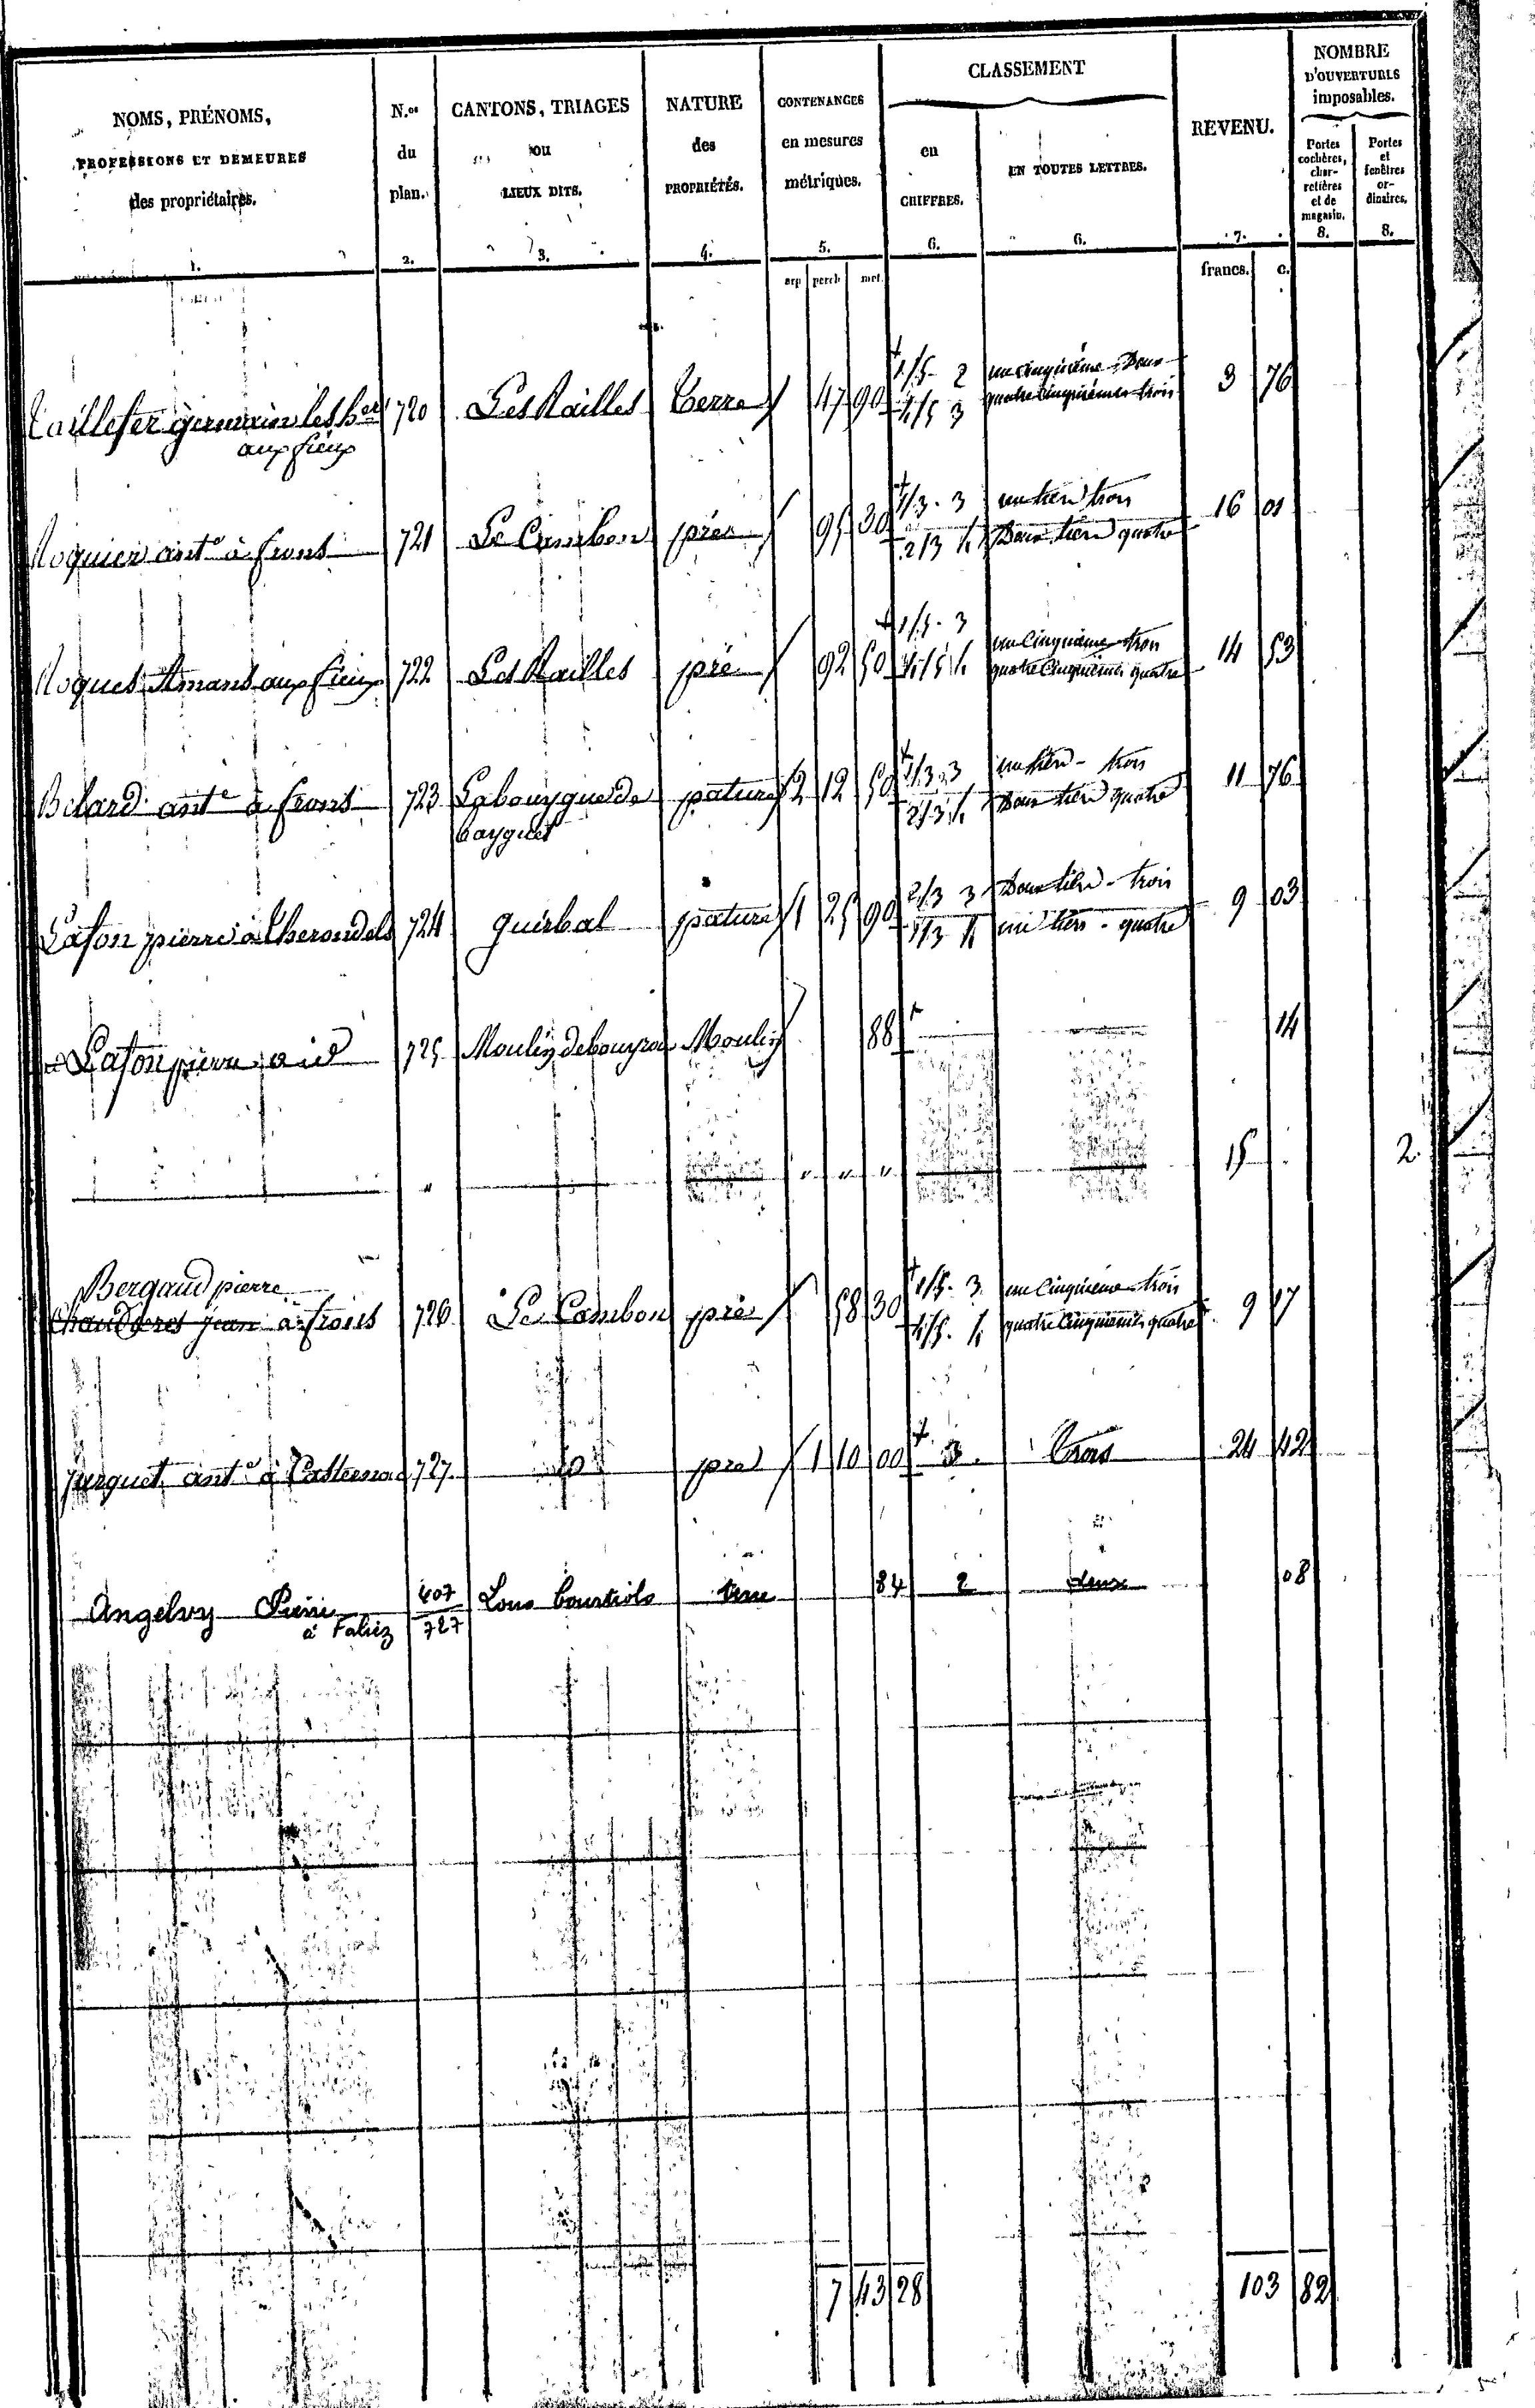 NOMS, PRÉNOMS,
PROFESSIONS ET DEMEURES
des propriétaires.
1.
N.os
du
plan.
2.
CANTONS, TRIAGES
ou
LIEUX DITS.
3.
NATURE
des
PROPRIÉTÉS.
4.
CONTENANCES
en mesures
métriques.
5.
arp perch met.
CLASSEMENT
en
CHIFFRES.
6.
EN TOUTES LETTRES.
6.
REVENU.
7.
francs. c.
NOMBRE
D'OUVERTURES
imposables.
Portes
cochères,
char-
retières
et de
magasin.
8.
Portes
et
fenêtres
or-
dinaires.
8.
1/5 2 un cinquième Deux
Taillefer germain les her 720 Les Railles terre 47 90 4/5 3 quatre Cinquièmes trois 3 76
aux fieux
1/3 3 un tiers trois
Roquier ante à frons 721 Le Cambon pres 95 30 2/3 4 Deux tiers quatre 16 01
1/5 3 un Cinquième trois
Roques Amans aux fieux 722 Les Railles pré 92 50 4/5 4 quatre Cinquièmes quatre 14 53
1/3 3 un tiers - trois
Belard ante à frons 723 Labouygue de pature 2 12 50 2/3 4 Deux tiers quatre 11 76
2/3 3 Deux tiers - trois
Lafon pierre 724 guirbal pature 1 25 90 1/3 4 un tiers - quatre 9 03
Lafon pierre a id 725 Moulin Moulin 88 14
" " " " 15 2
Bergaud pierre 1/5 3 un Cinquième trois
jean à frons 726 Le Cambon pré 58 30 4/5 4 quatre Cinquièmes quatre 9 17
ante à 727 id pred 1 10 00 3 trois 24 42
Angelvy Pierre 407 Lous terre 84 2 deux 08
à Faliez 727
7 43 28 103 82